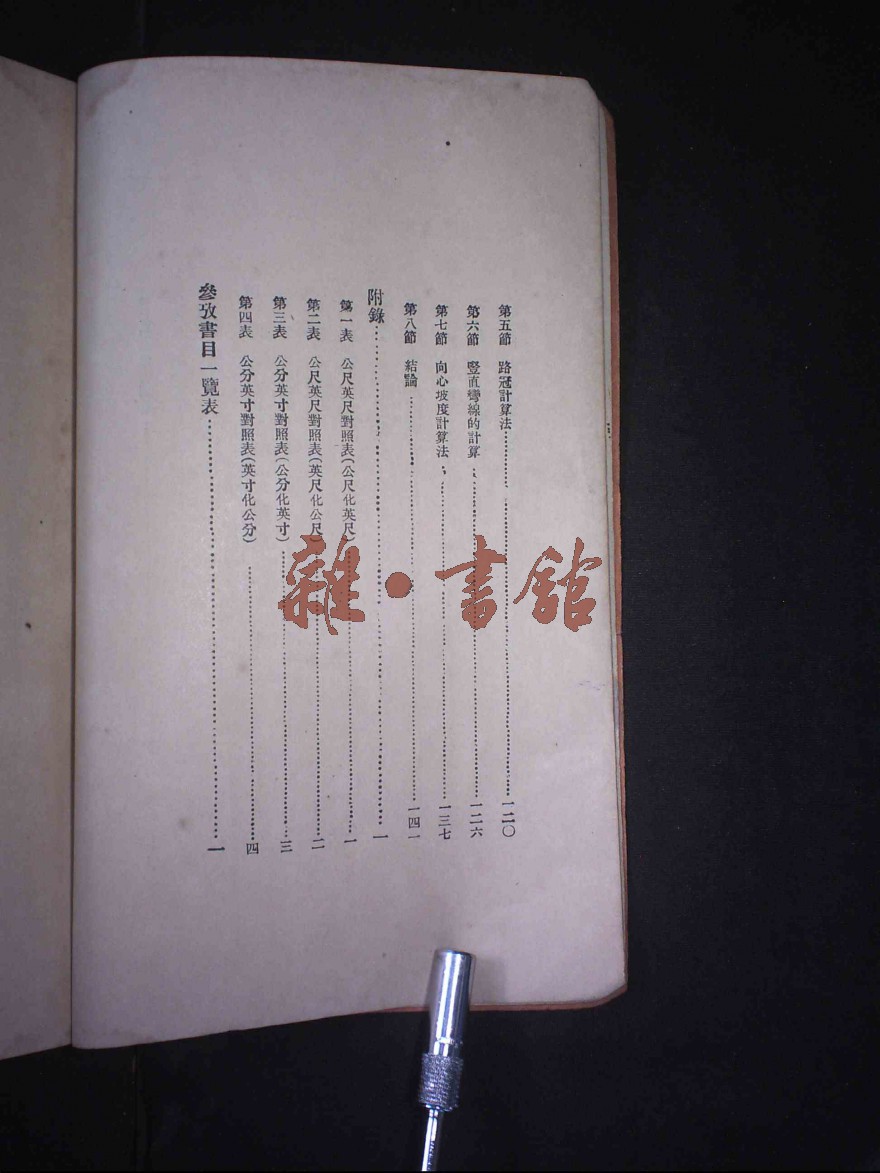 第五節　路冠計算法……………………一二〇
第六節　豎直彎線的計算……………………一二六
第七節　向心坡度計算法……………………一三七
第八節　結論……………………一四一
附錄……………………一
第一表　公尺英尺對照表(公尺化英尺)……………………一
第二表　公尺英尺對照表(英尺化公尺)……………………二
第三表　公分英寸對照表(公分化英寸)……………………三
第四表　公分英寸對照表(英寸化公分)……………………四
參攷書目一覽表……………………一
雜·書館